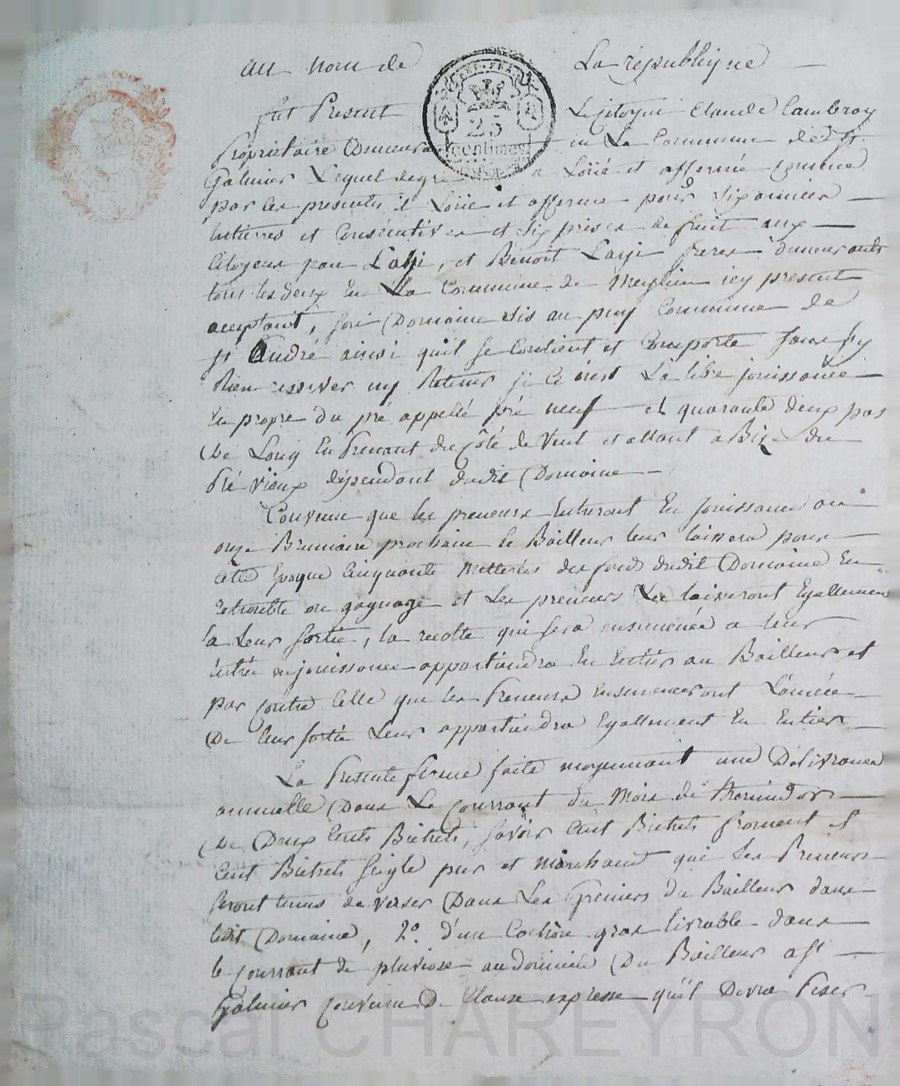 au nom de La republique
fut Present Le citoyen Claude Cambray
Propriétaire Demeurant en La Commune de st
Galmier Lequel de gré a Loüé et affermé comme
par les presentes il Loüe et afferme pour six années
entieres et Consécutives et six prises de fruit aux
Citoyens jean et Benoit freres demeurants
tous les deux En La Commune de Meylieu icy present
acceptant, son Domaine sis au puy Commune de
st André ainsi qu'il se Contient et Comporte sans sy
Rien reserver ny Retenir si ce n'est La libre jouissance
En propre du pré appellé pré neuf et quarante deux pas
De Long En Prenant du Côté de Vent et allant a Bize du
Pré vieux dépendant dudit Domaine
Convenu que les preneurs Entreront En jouissance au
onze Brumaire prochain Le Bailleur leur laissera pour
cette Epoque Cinquante metterés des fonds dudit Domaine En
retrouble ou gagnage et Les preneurs Les laisseront Egallement
a Leur sortie, la recolte qui sera ensemencée a leur
entrée en jouissance appartiendra En Entier au Bailleur et
par contre Celle que les Preneurs Ensemenceront L'année
De leur sortie Leur appartiendra Egallement En Entier
La Presente ferme faite moyennant une Délivrance
annuelle Dans Le Courrant du Mois de thermidor
De Deux Cents Bichets, savoir Cent Bichets froment et
Cent Bichets seigle pur et marchand que Les Preneurs
seront tenus de verser Dans Les Greniers du Bailleur dans
ledit Domaine, 2°. d'un Cochon gras livrable dans
le Courrant de pluviose au domicile Du Bailleur a st
Galmier Convenu De Clause expresse qu'il Devra Peser
25
centimes
Pascal CHAREYRON